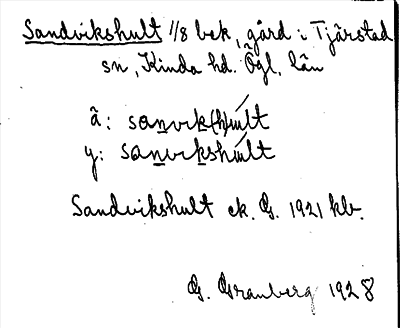 Sandvikshult 1/8 bek, gård i Tjärstad
sn, Kinda hd. Ögl. län
ä: sanvik(h)ult
y: sanvikshult
Sandvikshult ek. G. 1921 kb.
G. Granberg 1928